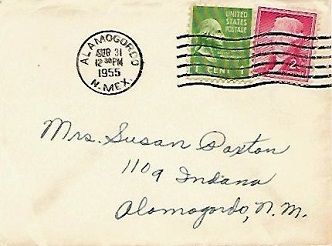 ALAMOGORDO
AUG 31
12 30 PM
1955
N. MEX.
UNITED
STATES
POSTAGE
CENT 1
2
Mrs. Susan Paxton
1109 Indiana
Alamogordo, N.M.